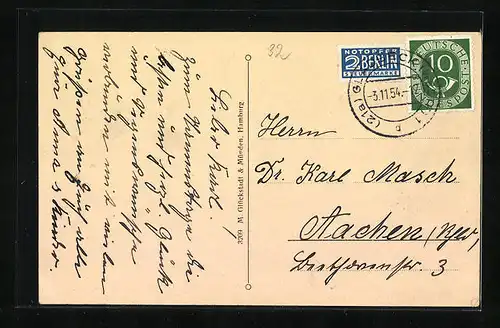 32
NOTOPFER
2 BERLIN
STEUERMARKE
DEUTSCHE
10
POST
(21a) GL
-3.11.54.-
Lieber Karl!
Zum Namenstage die
besten und herzl. Glück
und Segenswünsche
verbunden mit vielen
Grüßen
Anna u. Kinder.
3209 M. Glückstadt & Münden, Hamburg
Herrn
Dr. Karl Masch
Aachen,
Beethovenstr. 3